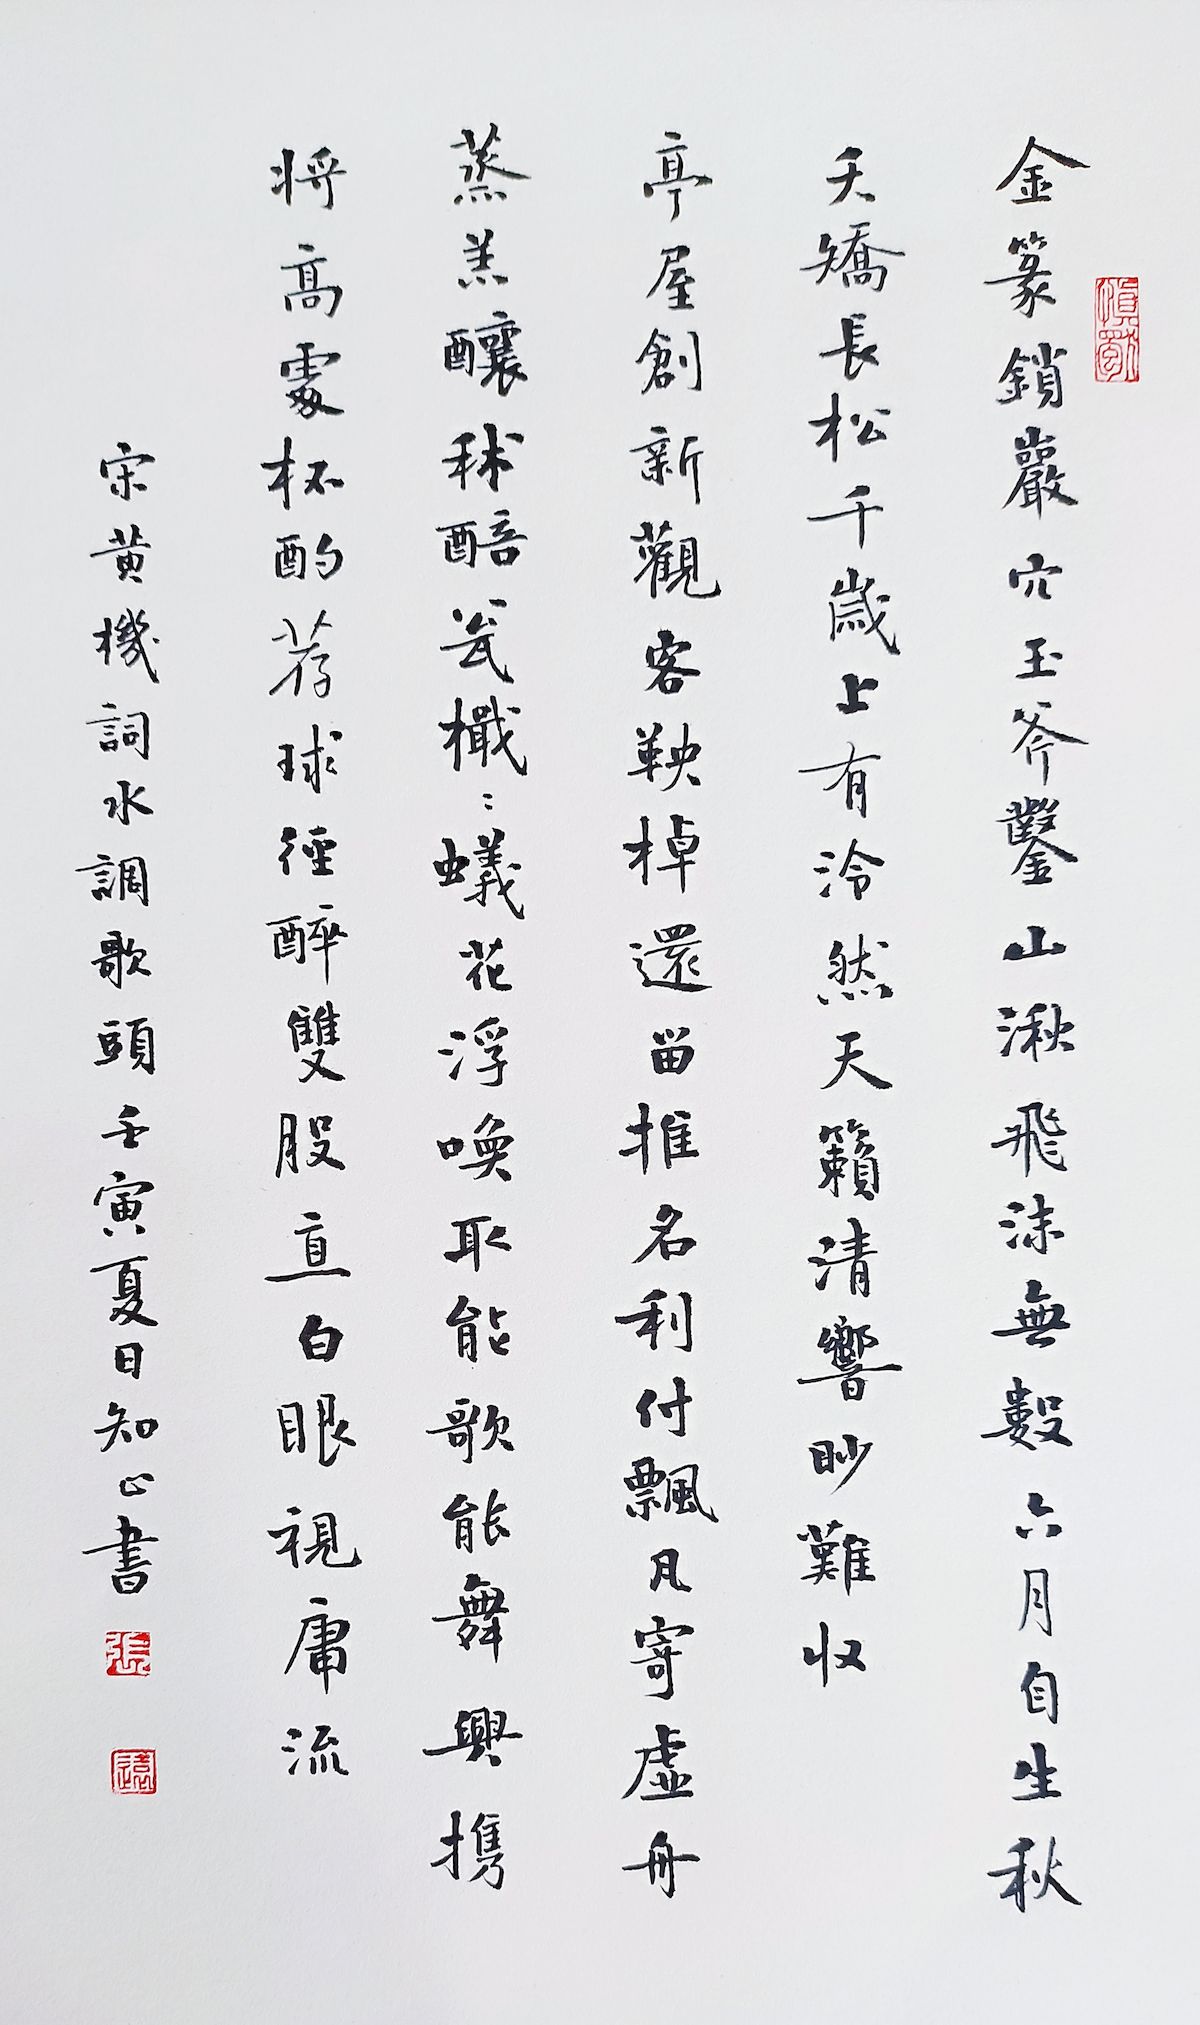 金篆鎖巖穴玉斧鑿山湫飛沫無數六月自生秋
夭矯長松千歲上有泠然天籟清響眇難收
亭屋創新觀客鞅棹還留推名利付飄凡寄虛舟
蒸羔釀秫醅瓮檝〻蟻花浮喚取能歌能舞興携
将高處杯酌荐球徑醉雙股直白眼視庸流
宋黄機詞水調歌頭壬寅夏日知心書
張